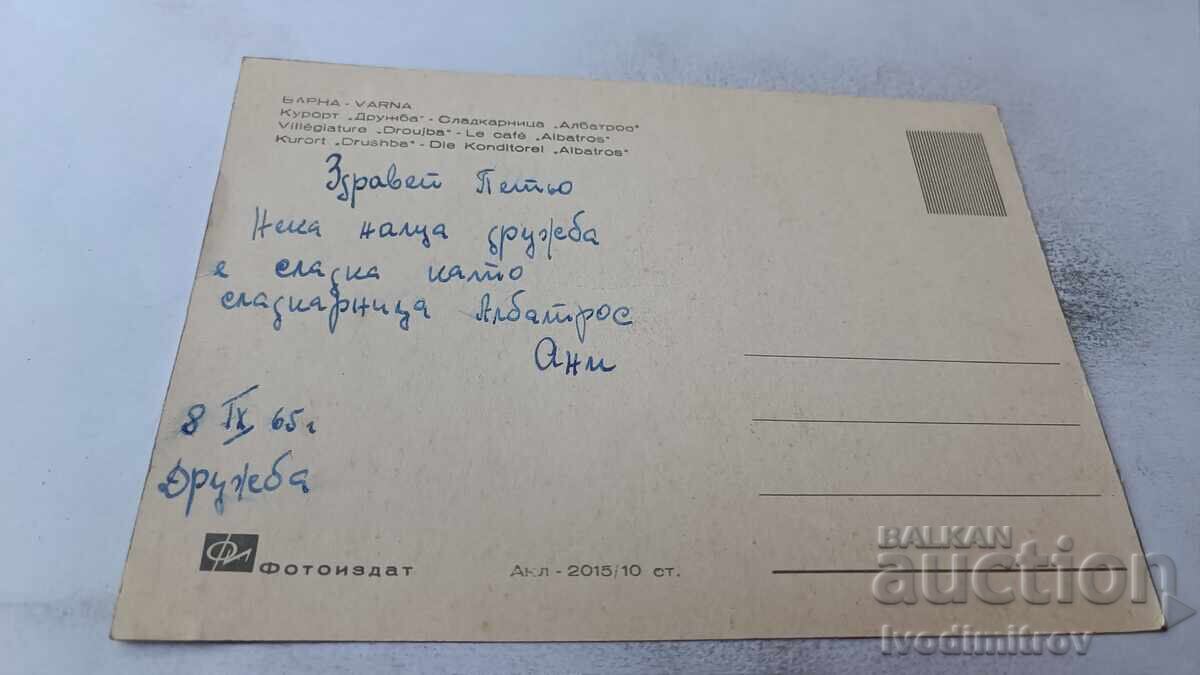 ВАРНА - VARNA
Курорт „Дружба" - Сладкарница „Албатрос"
Villégiature „Droujba" - Le café „Albatros"
Kurort „Drushba" - Die Konditorei „Albatros"
Здравей Петьо
Нека наща дружба
е сладка като
сладкарница Албатрос
Ани
8 IX 65 г
Дружба
Фотоиздат
Акл - 2015/10 ст.
BALKAN
auction
Ivodimitrov